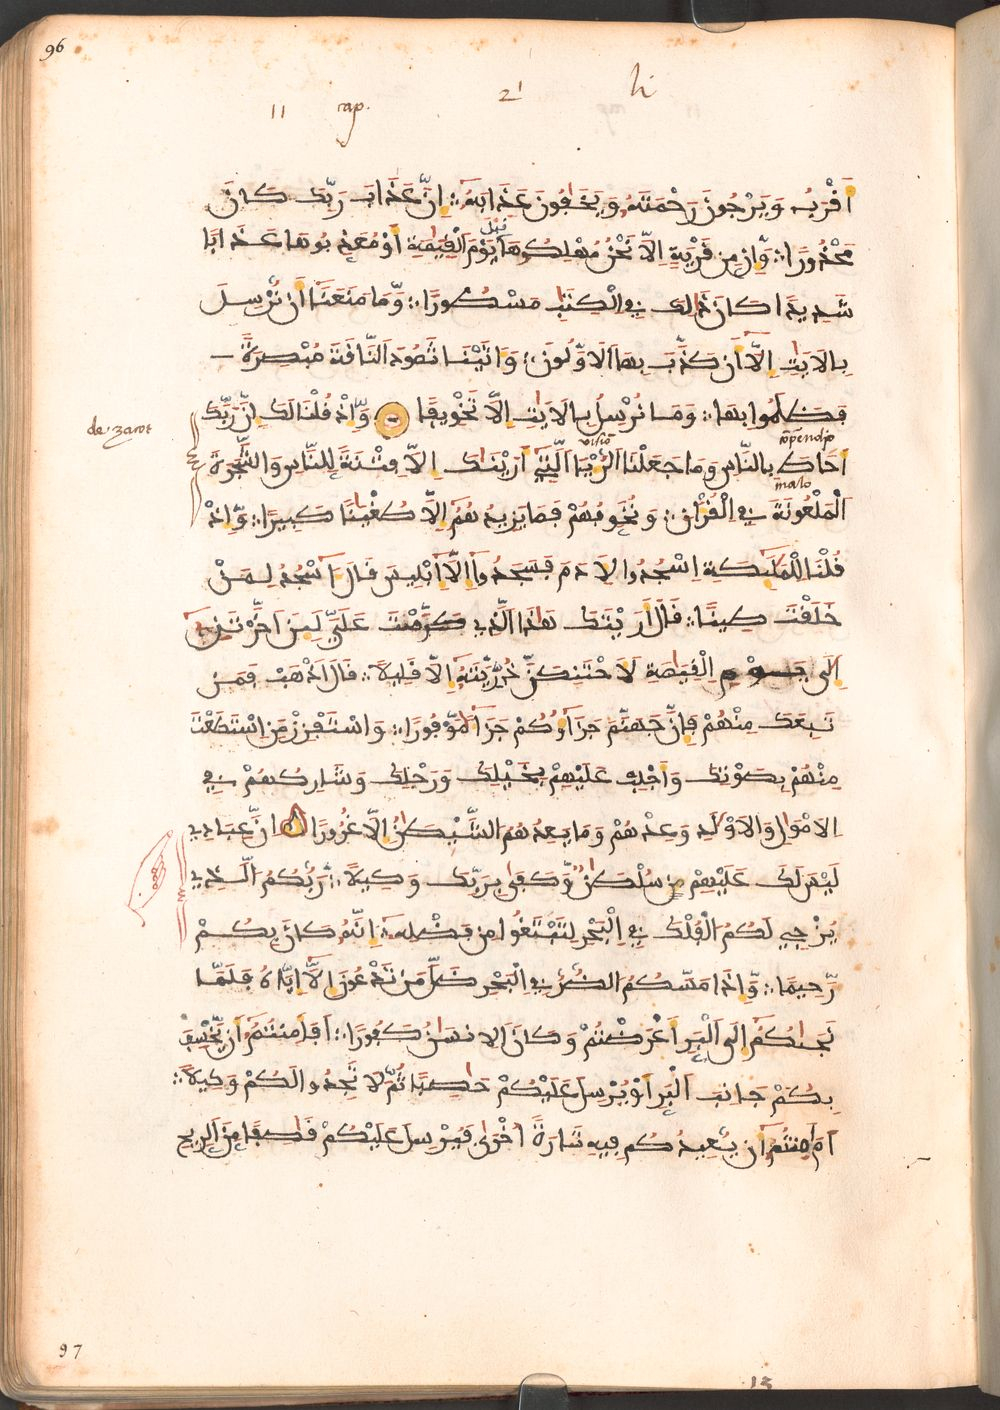 96
11 cap. 21 li
أَقْرَبُ وَيَرْجُونَ رَحْمَتَهُ وَيَخَافُونَ عَذَابَهُ إِنَّ عَذَابَ رَبِّكَ كَانَ
مَحْذُورًا وَّإِن مِّن قَرْيَةٍ إِلَّا نَحْنُ مُهْلِكُوهَا قَبْلَ يَوْمِ الْقِيَٰمَةِ أَوْ مُعَذِّبُوهَا عَذَابًا
شَدِيدًا كَانَ ذَٰلِكَ فِي الْكِتَٰبِ مَسْطُورًا وَّمَا مَنَعَنَا أَن نُّرْسِلَ
بِالْآيَٰتِ إِلَّا أَن كَذَّبَ بِهَا الْأَوَّلُونَ وَآتَيْنَا ثَمُودَ النَّاقَةَ مُبْصِرَةً
فَظَلَمُوا بِهَا وَمَا نُرْسِلُ بِالْآيَٰتِ إِلَّا تَخْوِيفًا وَّإِذْ قُلْنَا لَكَ إِنَّ رَبَّكَ
de zarot
compendio
أَحَاطَ بِالنَّاسِ وَمَا جَعَلْنَا الرُّءْيَا الَّتِي أَرَيْنَٰكَ إِلَّا فِتْنَةً لِلنَّاسِ وَالشَّجَرَةَ
visio
malo
الْمَلْعُونَةَ فِي الْقُرْآنِ وَنُخَوِّفُهُمْ فَمَا يَزِيدُهُمُ إِلَّا طُغْيَٰنًا كَبِيرًا وَّإِذْ
قُلْنَا لِلْمَلَٰئِكَةِ اسْجُدُوا لِآدَمَ فَسَجَدُوا إِلَّا إِبْلِيسَ قَالَ أَأَسْجُدُ لِمَنْ
خَلَقْتَ طِينًا قَالَ أَرَيْتَكَ هَٰذَا الَّذِي كَرَّمْتَ عَلَيَّ لَئِنْ أَخَّرْتَنِي
إِلَى يَوْمِ الْقِيَٰمَةِ لَأَحْتَنِكَنَّ ذُرِّيَّتَهُ إِلَّا قَلِيلًا قَالَ اذْهَبْ فَمَن
تَبِعَكَ مِنْهُمْ فَإِنَّ جَهَنَّمَ جَزَاؤُكُمْ جَزَاءً مَّوْفُورًا وَاسْتَفْزِزْ مَنِ اسْتَطَعْتَ
مِنْهُمْ بِصَوْتِكَ وَأَجْلِبْ عَلَيْهِمْ بِخَيْلِكَ وَرَجْلِكَ وَشَارِكْهُمْ فِي
الْأَمْوَٰلِ وَالْأَوْلَٰدِ وَعِدْهُمْ وَمَا يَعِدُهُمُ الشَّيْطَٰنُ إِلَّا غُرُورًا إِنَّ عِبَادِي
لَيْسَ لَكَ عَلَيْهِمْ مِن سُلْطَٰنٌ وَّكَفَىٰ بِرَبِّكَ وَكِيلًا رَّبُّكُمُ الَّذِي
يُزْجِي لَكُمُ الْفُلْكَ فِي الْبَحْرِ لِتَبْتَغُوا مِن فَضْلِهِ إِنَّهُ كَانَ بِكُمْ
رَّحِيمًا وَّإِذَا مَسَّكُمُ الضُّرُّ فِي الْبَحْرِ ضَلَّ مَن تَدْعُونَ إِلَّا إِيَّاهُ فَلَمَّا
نَجَّٰكُمُ إِلَى الْبَرِّ أَعْرَضْتُمْ وَكَانَ الْإِنسَٰنُ كَفُورًا أَفَأَمِنتُمُ أَن يَّخْسِفَ
بِكُمْ جَانِبَ الْبَرِّ أَوْ يُرْسِلَ عَلَيْكُمْ حَاصِبًا ثُمَّ لَا تَجِدُوا لَكُمْ وَكِيلًا
أَمْ أَمِنتُمُ أَن يُعِيدَكُمْ فِيهِ تَارَةً أُخْرَىٰ فَيُرْسِلَ عَلَيْكُمْ قَاصِفًا مِنَ الرِّيحِ
97
13